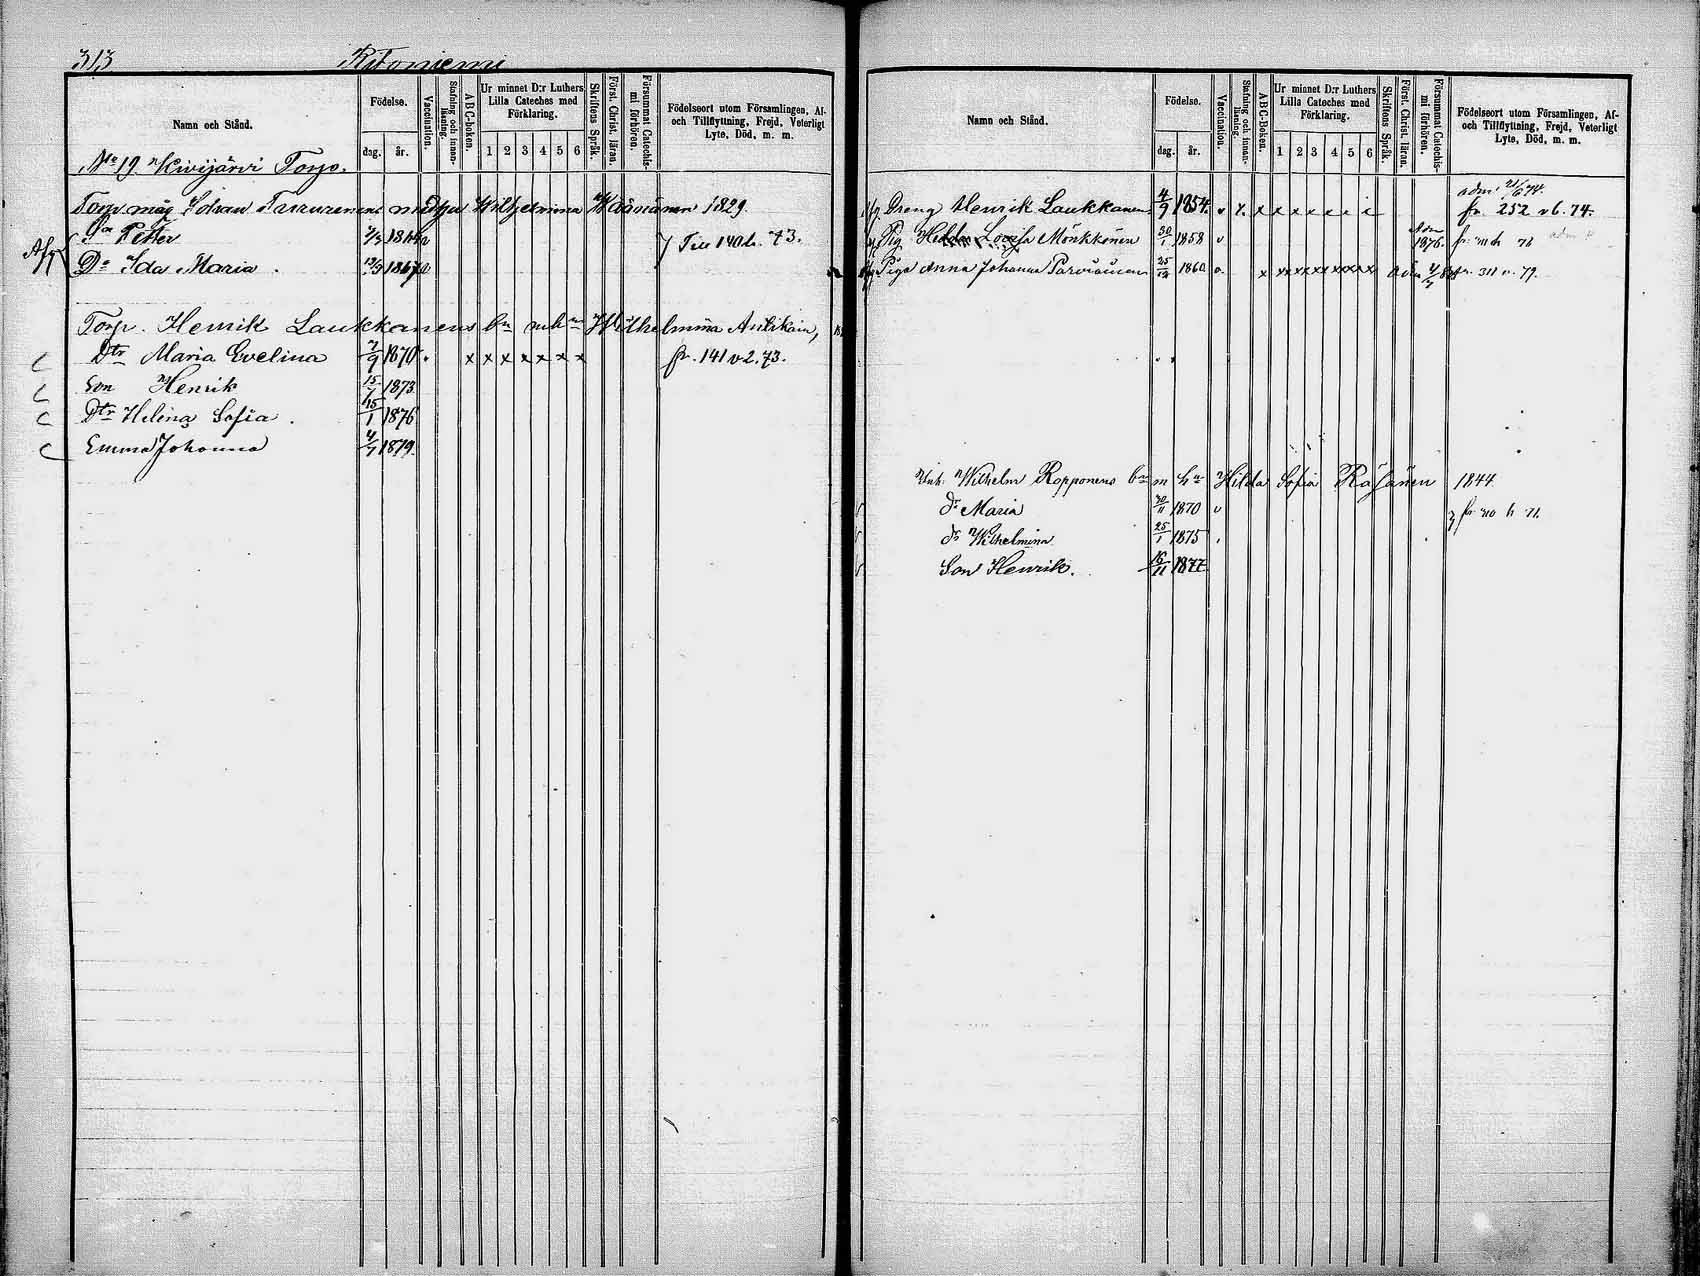 313 Ritoniemi
Namn och Stånd.
Födelse.
dag. år.
Vaccination.
Stafning och innanläsning.
ABC-boken.
Ur minnet D:r Luthers Lilla Cateches med Förklaring.
1 2 3 4 5 6
Skriftens Språk.
Först. Christ. läran.
Försummat Catechismi förhören.
Födelseort utom Församlingen, Af- och Tillflyttning, Frejd, Veterligt Lyte, Död, m. m.
No 19 Kivijärvi Torp.
Torp. måg Johan enka Wilhelmina Wäänänen 1829.
Petter 1864 v Till 140 h. 73.
Do Ida Maria 1867
Torp. Henrik Laukkanens bn m hu Wilhelmina Antikain,
Dtr Maria Evelina 7/9 1870 x x x x x x x fr. 141 v 2. 73.
Son Henrik 15/7 1873
Dtr Helena Sofia 15/1 1876
Emma Johanna 4/7 1879
Namn och Stånd.
Födelse.
dag. år.
Vaccination.
Stafning och innanläsning.
ABC-Boken.
Ur minnet D:r Luthers Lilla Cateches med Förklaring.
1 2 3 4 5 6
Skriftens Språk.
Först. Christ. läran.
Försummat Catechismi förhören.
Födelseort utom Församlingen, Af- och Tillflyttning, Frejd, Veterligt Lyte, Död, m. m.
Dreng Henrik Laukkanen 4/9 1854 v x x x x x fr. 252 v 6. 74.
Pig Hedda Lovisa Mönkkönen 30/1 1858 v 1876.
Piga Anna Johanna Parviainen 25/12 1860 x fr. 311 v. 79.
Inh. Wilhelm Ropponens bn m hu Hilda Sofia Räsänen 1844
dr Maria 1870 v
dr Wilhelmina 25/1 1875
Son Henrik. 16/11 1877